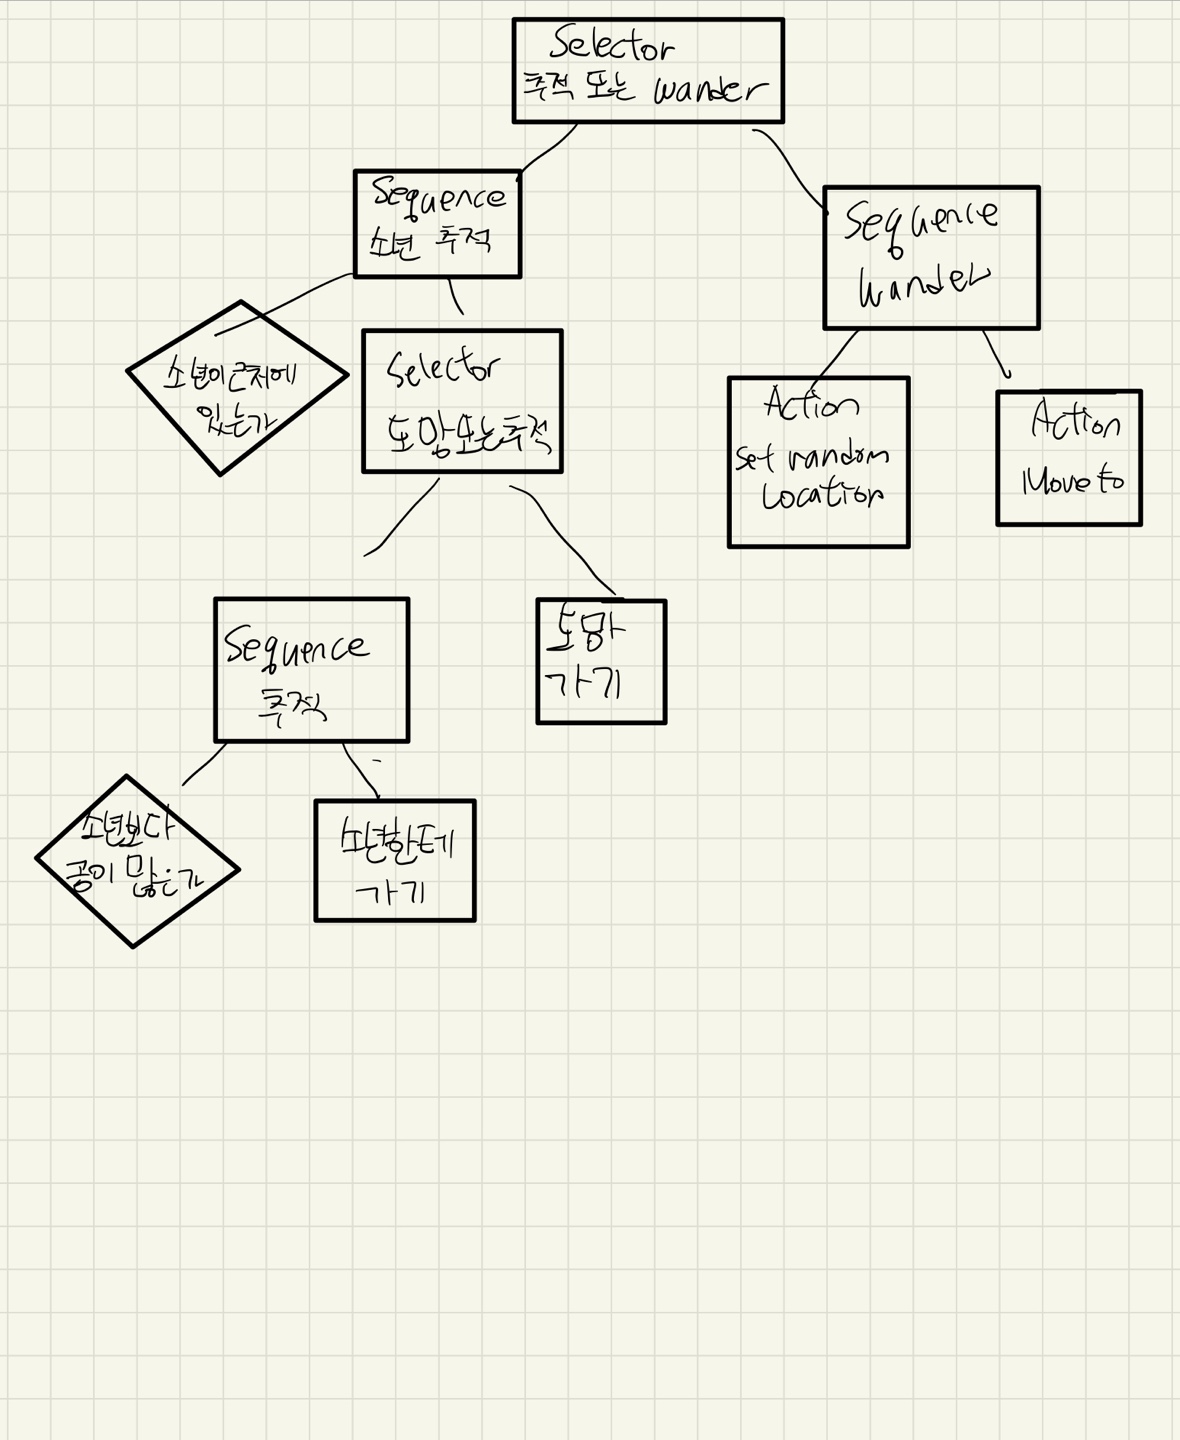 Selector
추적 또는 wander
Sequence
소년 추적
Sequence
wander
소년이 근처에
있는가
Selector
도망 또는 추적
Action
set random
Location
Action
Move to
Sequence
추적
도망
가기
소년보다
공이 많은가
소년한테
가기